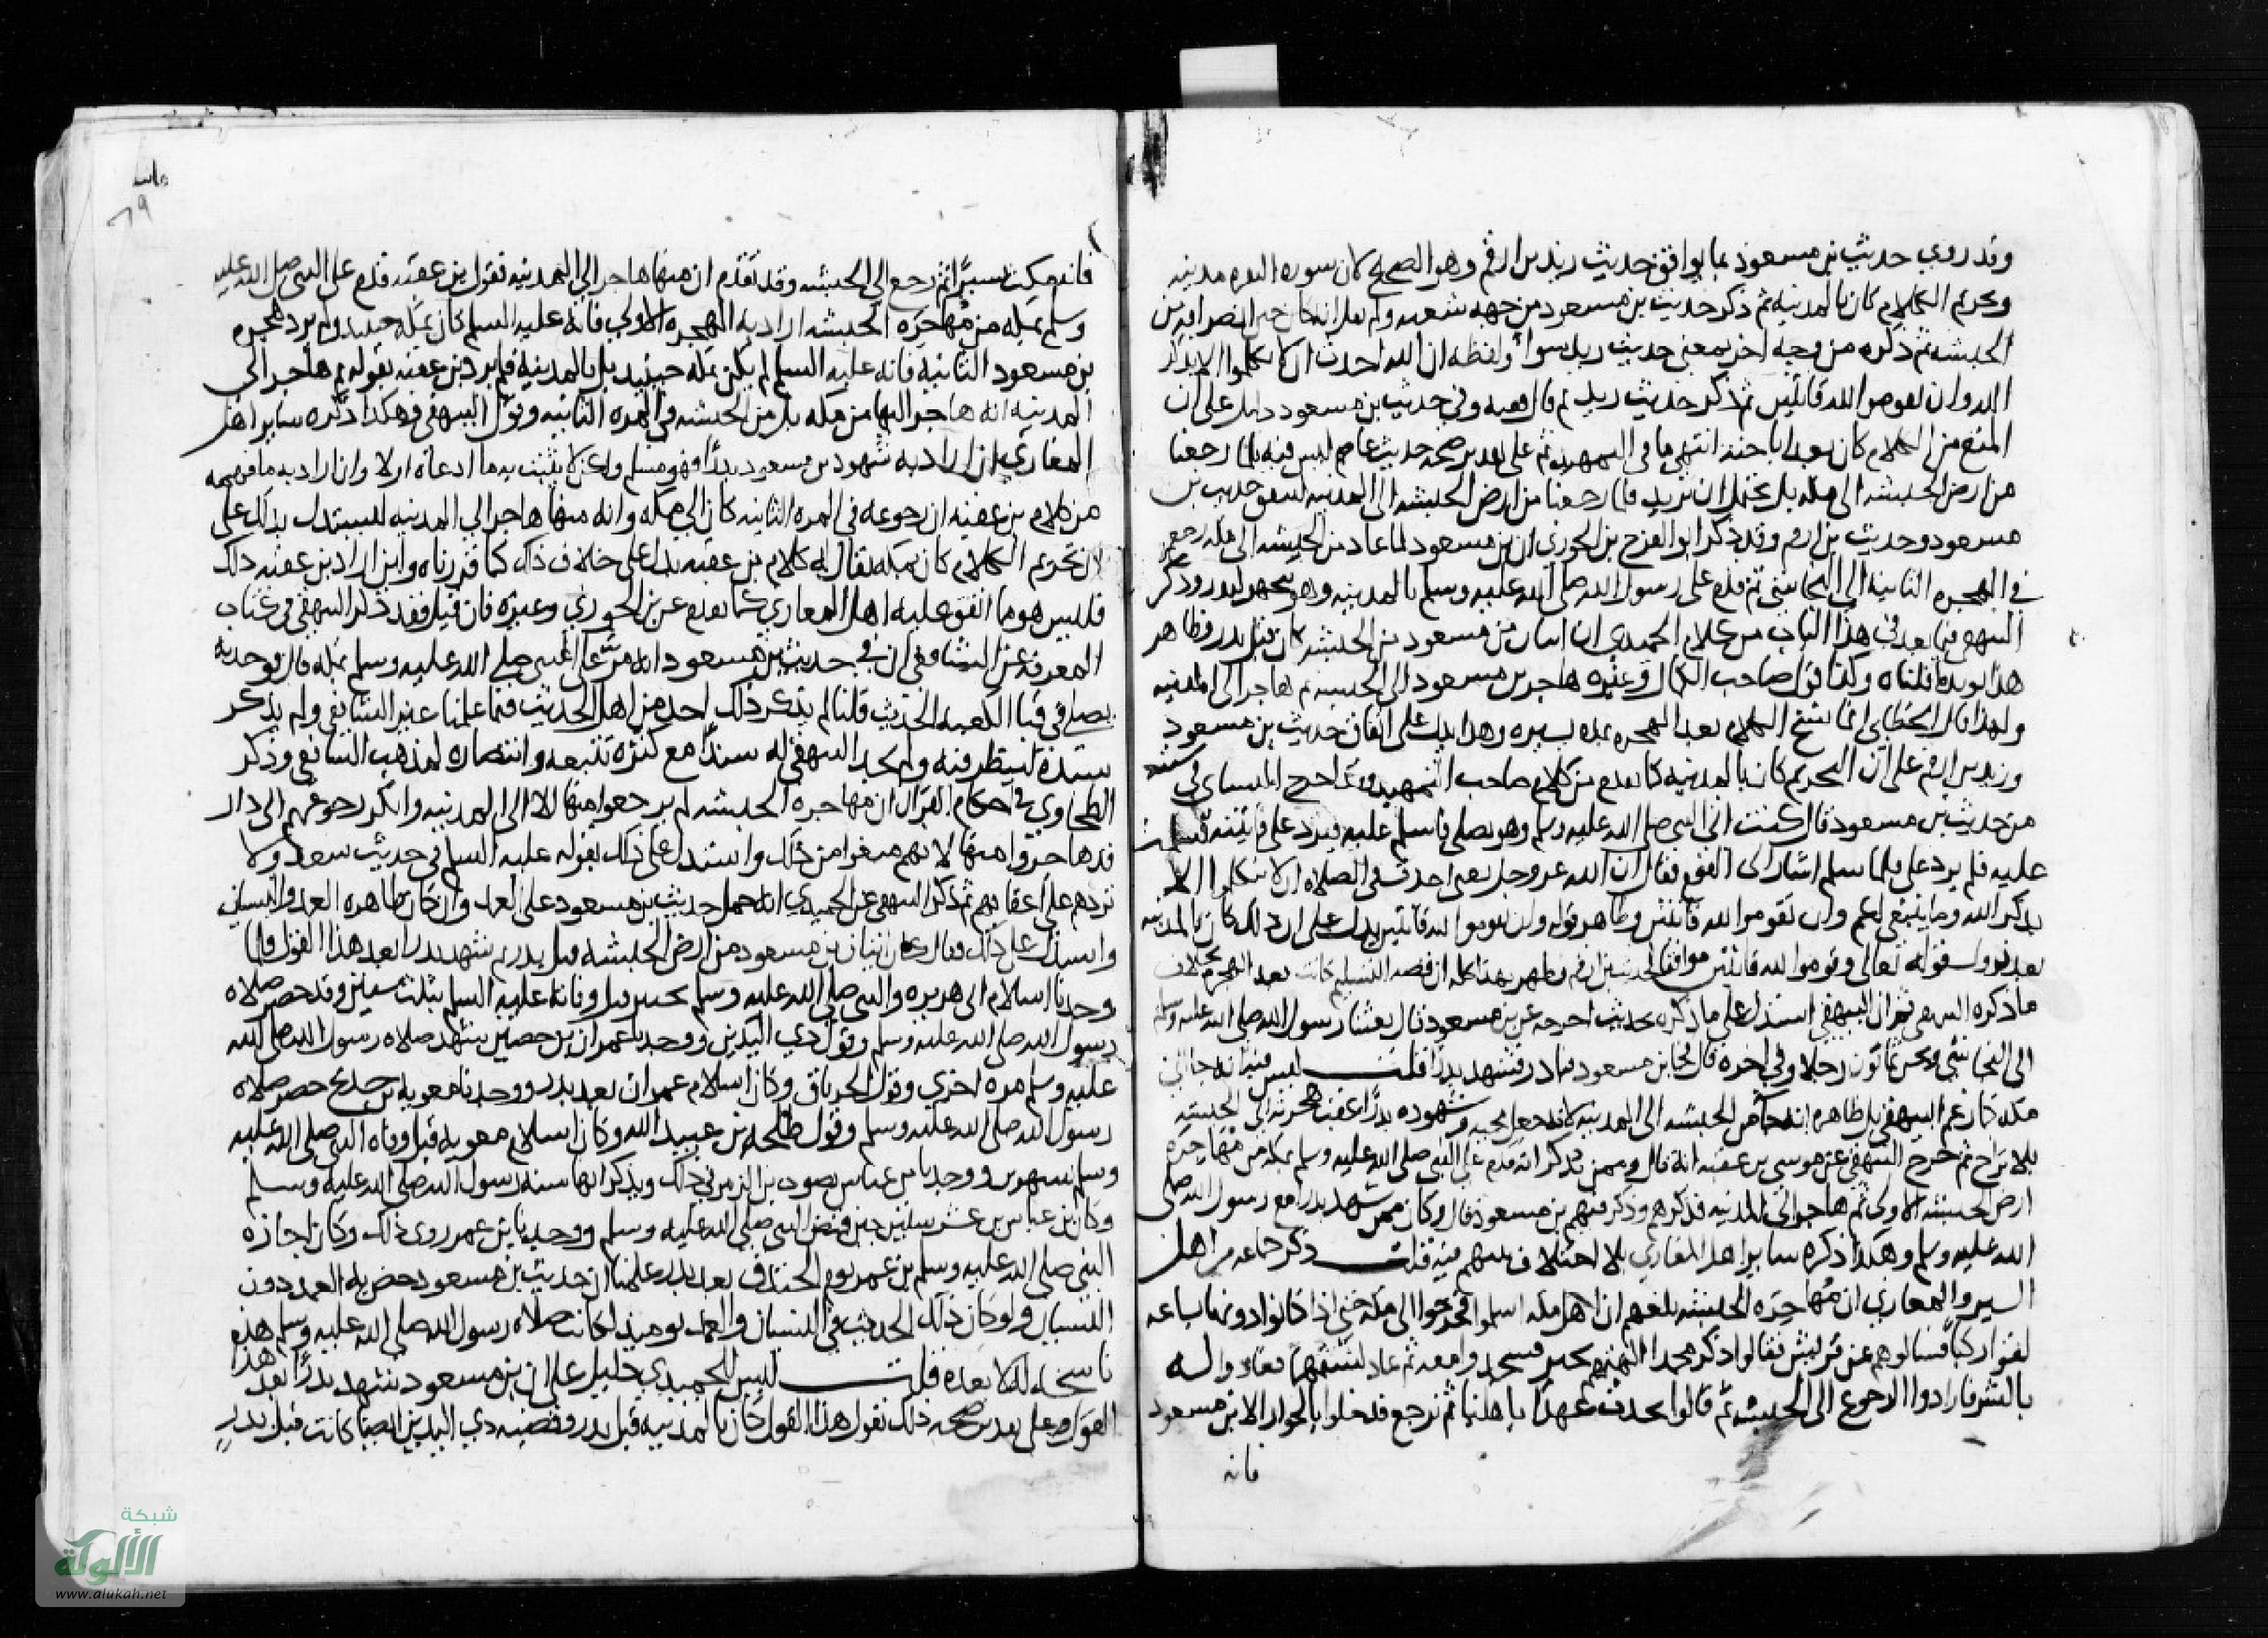 وقد روي حديث بن مسعود بما يوافق حديث زيد بن ارقم وهو الصحيح لان سوره البقره مدنيه
وتحريم الكلام كان بالمدينه ثم ذكر حديث بن مسعود من جهه شعبه ولم يقل انه كان حين انصرافه من
الحبشه ثم ذكره من وجه اخر بمعنى حديث زيد سواء ولفظه ان الله احدث ان لا تكلموا الا بذكر
الله وان تقوموا لله قانتين ثم ذكر حديث زيد ثم قال ففيه وفي حديث بن مسعود دليل على ان
المنع من الكلام كان بعد اباحته انتهى ما في التمهيد ثم على تقدير صحه حديث عاصم ليس فيه فلما رجعنا
من ارض الحبشه الى مكه بل يحتمل ان يريد فلما رجعنا من ارض الحبشه الى المدينه ليتفق حديث بن
مسعود وحديث بن ارقم وقد ذكر ابو الفرج بن الجوزي ان بن مسعود لما عاد من الحبشه الى مكه رجع
في الهجره الثانيه الى النجاشي ثم قدم على رسول الله صلى الله عليه وسلم بالمدينه وهو يتجهز لبدر وذكر
البيهقي فيما بعد في هذا الباب من كلام الحميدي ان اتيان بن مسعود من الحبشه كان قبل بدر وظاهر
هذا يويد ما قلناه وكذا قول صاحب الكمال وغيره هاجر بن مسعود الى الحبشه ثم هاجر الى المدينه
ولهذا قال الخطابي انما نسخ الكلام بعد الهجره بمده يسيره وهذا يدل على اتفاق حديث بن مسعود
وزيد بن ارقم على ان التحريم كان بالمدينه كما تقدم من كلام صاحب التمهيد وقد اخرج النسائي في سننه
من حديث بن مسعود قال كنت اتي النبي صلى الله عليه وسلم وهو يصلي فاسلم عليه فيرد علي فاتيته فسلمت
عليه فلم يرد علي فلما سلم اشار الى القوم فقال ان الله عز وجل يعني احدث في الصلاه ان لا تكلموا الا
بذكر الله وما ينبغي لكم وان تقوموا لله قانتين وظاهر قوله وان تقوموا لله قانتين يدل على ان ذلك كان بالمدينه
بعد نزول قوله تعالى وقوموا لله قانتين موافقا لحديث بن ارقم فظهر بهذا كله ان قصه التسليم كانت بعد الهجره بخلاف
ما ذكره البيهقي ثم ان البيهقي استدل على ما ذكره بحديث اخرجه عن بن مسعود قال بعثنا رسول الله صلى الله عليه وسلم
الى النجاشي ونحن ثمانون رجلا وفي اخره قال فجا بن مسعود فبادر فشهد بدرا قلت ليس فيه انه جا الى
مكه كما زعم البيهقي بل ظاهره انه جا من الحبشه الى المدينه لانه جعل مجيه وشهوده بدرا عقب هجرته الى الحبشه
بلا تراخ ثم خرج البيهقي عن موسى بن عقبه انه قال وممن يذكر انه قدم على النبي صلى الله عليه وسلم بمكه من مهاجره
ارض الحبشه الاولى ثم هاجر الى المدينه فذكرهم وذكر فيهم بن مسعود قال وكان ممن شهد بدرا مع رسول الله صلى
الله عليه وسلم وهكذا ذكره ساير اهل المغازي بلا اختلاف بينهم فيه قلت ذكر جماعه من اهل
السير والمغازي ان مهاجره الحبشه بلغهم ان اهل مكه اسلموا فخرجوا الى مكه حتى اذا كانوا دونها بساعه
لقوا ركبا فسالوهم عن قريش فقالوا ذكر محمد الهتهم بخير فسجدوا معه ثم عاد لشتمها فعادوا له
بالشر فارادوا الرجوع الى الحبشه ثم قالوا نحدث عهدا باهلنا ثم نرجع فدخلوا بالجوار الا بن مسعود
فانه
٨٩
فانه مكث يسيرا ثم رجع الى الحبشه وقد تقدم ان منها هاجر الى المدينه فقول بن عقبه قدم على النبي صلى الله عليه
وسلم بمكه من مهاجره الحبشه اراد به الهجره الاولي فانه عليه السلم كان بمكه حينيذ ولم يرد هجره
بن مسعود الثانيه فانه عليه السلم لم يكن بمكه حينيذ بل بالمدينه فلم يرد بن عقبه بقوله ثم هاجر الى
المدينه انه هاجر اليها من مكه بل من الحبشه في المره الثانيه وقول البيهقي وهكذا ذكره ساير اهل
المغازي ان اراد به شهود بن مسعود بدرا فهو مسلم ولكن لا يثبت به ما ادعاه اولا وان اراد به ما فهمه
من كلام بن عقبه ان رجوعه في المره الثانيه كان الى مكه وانه منها هاجر الى المدينه ليستدل بذلك على
ان تحريم الكلام كان بمكه يقال له كلام بن عقبه يدل على خلاف ذلك كما قررناه ولين اراد بن عقبه ذلك
فليس هو ما اتفق عليه اهل المغازي كما تقدم عن بن الجوزي وغيره فان قيل فقد ذكر البيهقي في كتاب
المعرفه عن الشافعي ان في حديث بن مسعود انه مر على النبي صلى الله عليه وسلم بمكه قال فوجدته
يصلي في فنا الكعبه الحديث قلنا لم يذكر ذلك احد من اهل الحديث فيما علمنا غير الشافعي ولم يذكر
سنده لينظر فيه ولم يجد البيهقي له سندا مع كثره تتبعه وانتصاره لمذهب الشافعي وذكر
الطحاوي في احكام القران ان مهاجره الحبشه لم يرجعوا منها الا الى المدينه وانكر رجوعهم الى دار
قد هاجروا منها لانهم منعوا من ذلك واستدل على ذلك بقوله عليه السلم في حديث سعد ولا
تردهم على اعقابهم ثم ذكر البيهقي عن الحميدي انه حمل حديث بن مسعود على العمد وان كان ظاهره العمد والنسيان
واستدل على ذلك فقال كان اتيان بن مسعود من ارض الحبشه قبل بدر ثم شهد بدرا بعد هذا القول فلما
وجدنا اسلام ابي هريره والنبي صلى الله عليه وسلم بخيبر قبل وفاته عليه السلم بثلاث سنين وقد حضر صلاه
رسول الله صلى الله عليه وسلم وقول ذي اليدين ووجدنا عمران بن حصين شهد صلاه رسول الله صلى الله
عليه وسلم مره اخري وقول الخرباق وكان اسلام عمران بعد بدر ووجدنا معويه بن حديج حضر صلاه
رسول الله صلى الله عليه وسلم وقول طلحه بن عبيد الله وكان اسلام معويه قبل وفاه النبي صلى الله عليه
وسلم بشهرين ووجدنا بن عباس يصوب بن الزبير في ذلك ويذكر انها سنه رسول الله صلى الله عليه وسلم
وكان بن عباس بن عشر سنين حين قبض النبي صلى الله عليه وسلم ووجدنا بن عمر روى ذلك وكان اجازه
النبي صلى الله عليه وسلم بن عمر يوم الخندق بعد بدر علمنا ان حديث بن مسعود خص به العمد دون
النسيان ولو كان ذلك الحديث في النسيان والعمد يوميذ لكانت صلاه رسول الله صلى الله عليه وسلم هذه
ناسخه له لانها بعده قلت ليس للحميدي دليل على ان بن مسعود شهد بدرا بعد هذا
القول وعلى تقدير صحه ذلك نقول هذا القول كان بالمدينه قبل بدر وقضيه ذي اليدين ايضا كانت قبل بدر
شبكة
الألوكة
www.alukah.net